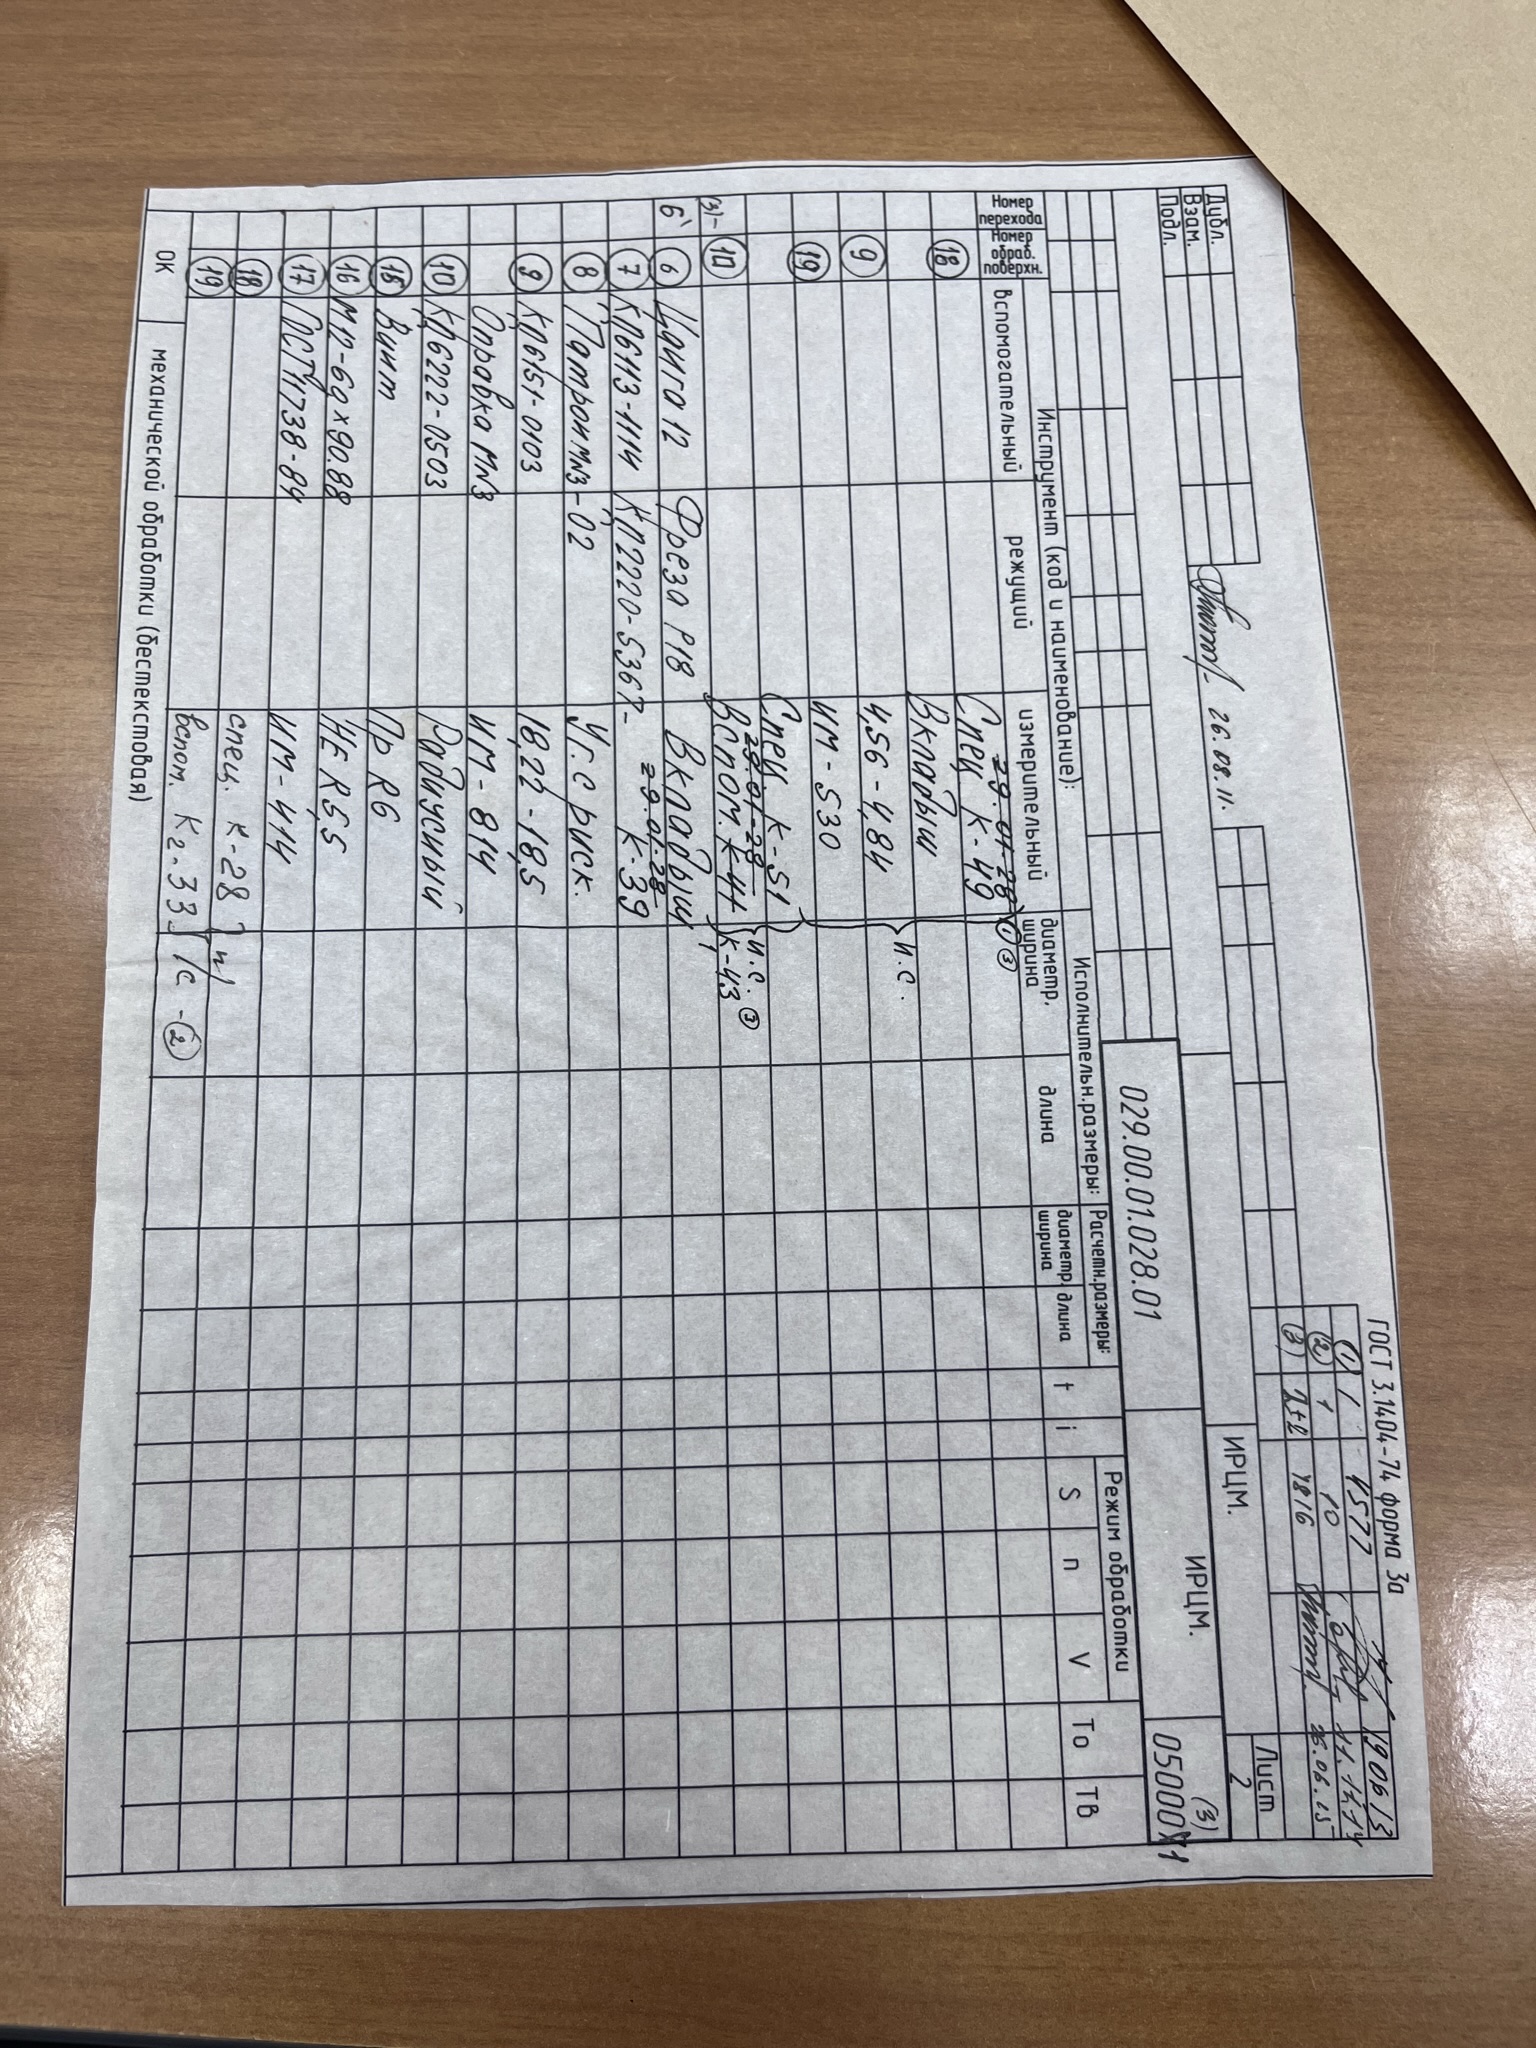 ГОСТ 3.1404-74 форма 3а
(1) 1 4577 190613
(2) 1 10 11.11.14
(3) 1816 26.06.15
Лист
2
ИРЦМ.
Дубл.
Взам.
Подл.
26.08.11.
029.00.01.028.01
ИРЦМ.
(3)
Номер перехода
Номер обраб. поверхн.
Инструмент (код и наименование):
вспомогательный
режущий
измерительный
Исполнительн.размеры:
диаметр, ширина
длина
Расчетн.размеры:
диаметр. ширина
длина
t
i
Режим обработки
S
n
V
То
Тв
29.01-28 (1) (3)
(18) Спец К-49
Вкладыш
и.с.
(9) 4,56-4,84
(19) ИМ-530
Спец. К-51
29.01-28 и.с. (3)
(3)- (10) Вспом. К-41 К-43
6 (6) Цанга 12 Фреза Р18 Вкладыш
29.01-28
(7) КД6113-1114 КД2220-5367- К-39
(8) Патрон MN3 -02 Уг. с риск.
(9) КД6151-0103 18,22-18,5
Оправка MN3 ИМ-814
(10) КД6222-0503 Радиусный
(15) Винт Пр R6
(16) М12-6g×90.88 НЕ R5,5
(17) ГОСТ11738-84 ИМ-414
(18) спец. К-28 и/с -(2)
(19) вспом. Кг-33
ОК
механической обработки (бестекстовая)